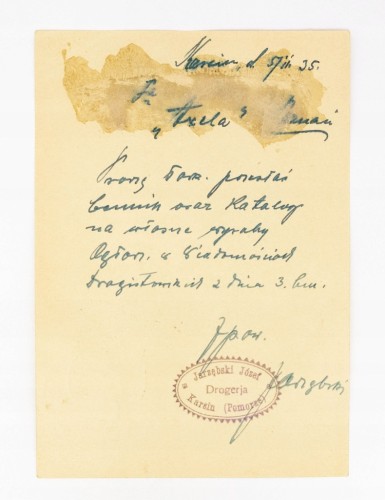 Karsin, d. 5/III 35.
Fa
"Axela" Poznań
Proszę Łask. przesłać
Cennik oraz Katalog
na własne wyroby
Ogłosz. w Wiadomościach
Drogistowskich z dnia 3. bm.
Z pow.
Jarzębski
Jarzębski Józef
Drogerja
Karsin (Pomorze)